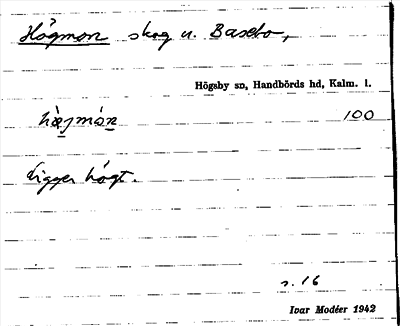 Högmon skog u. Basebo,
Högsby sn, Handbörds hd, Kalm. l.
hö̱jmó̱n 100
Ligger högt.
s. 16
Ivar Modéer 1942